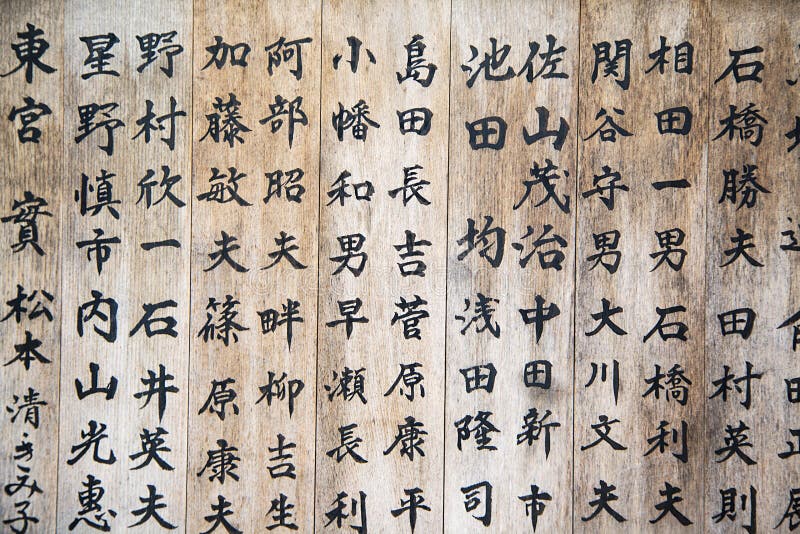 石橋勝夫 田村英則
相田一男 石橋利夫
関谷守男 大川文夫
佐山茂治 中田新市
池田 均 浅田隆司
島田長吉 菅原康平
小幡和男 早瀬長利
阿部昭夫 畔柳吉生
加藤敏夫 篠原康夫
野村欣一 石井英夫
星野慎市 内山光惠
東宮 實 松本清 きみ子